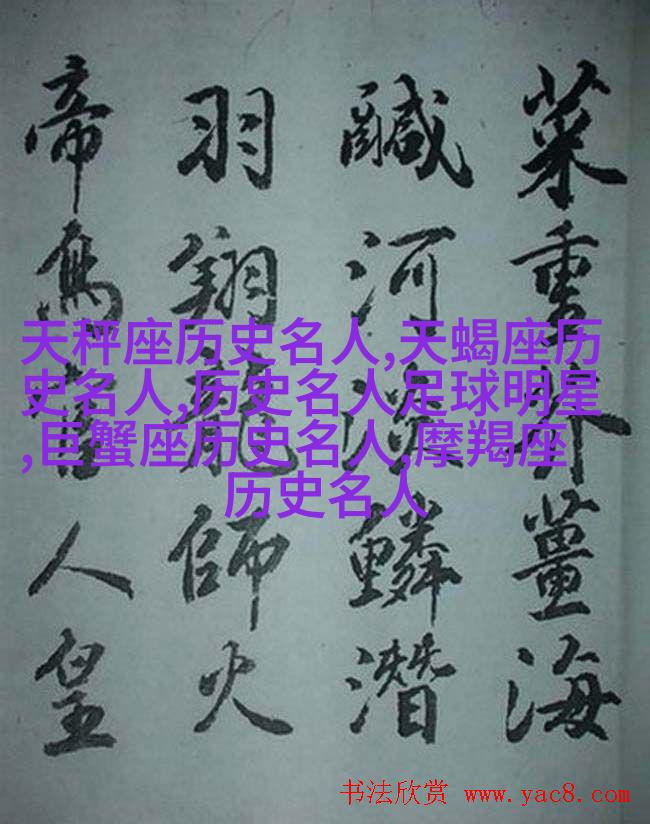 菜重芥薑海
鹹河淡鱗潛
羽翔龍師火
帝鳥官人皇
天秤座历史名人,天蝎座历
史名人,历史名人足球明星
,巨蟹座历史名人,摩羯座
历史名人
书法欣赏 www.yac8.com